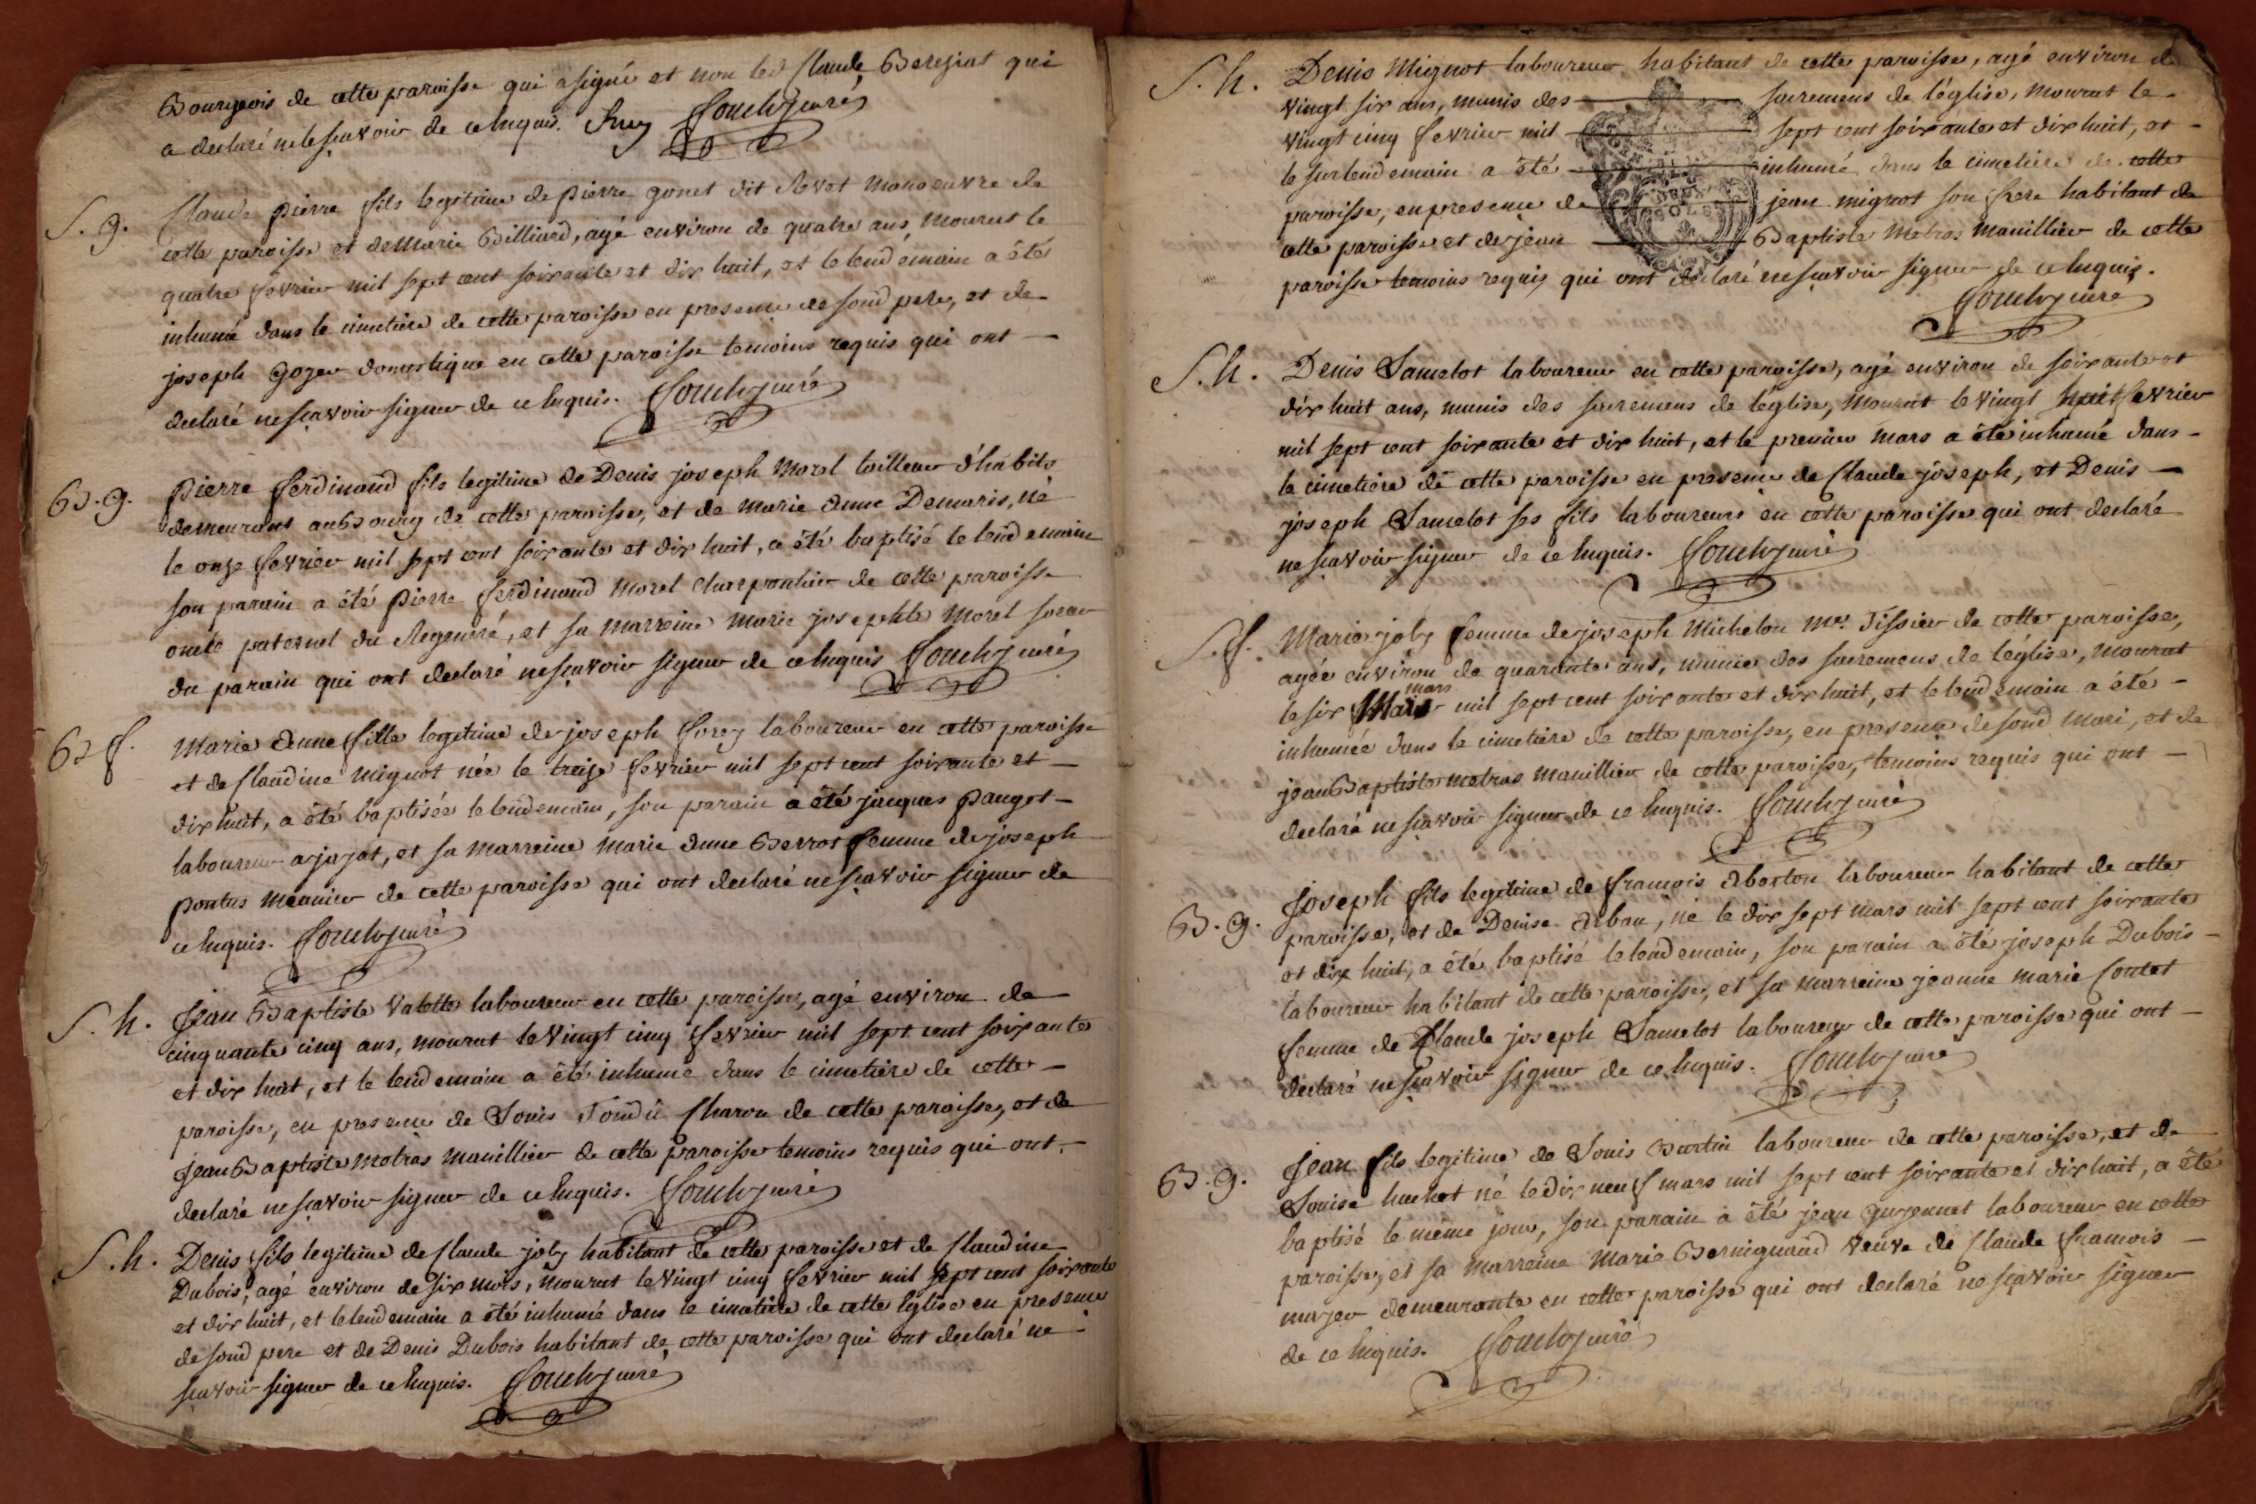 Bourgeois de cette paroisse qui a signé et non led Claude Bereziat qui
a declaré ne le sçavoir de ce Enquis. Curé
S. g. Claude Pierre fils legitime de Pierre gonet dit Revot manoeuvre de
cette paroisse et de Marie Billiard, agé environ de quatre ans, mourut le
quatre fevrier mil sept cent soixante et dix huit, et le lendemain a été
inhumé dans le cimetiere de cette paroisse en presence de soud pere, et de
joseph Goyer domestique en cette paroisse temoins requis qui ont
declaré ne sçavoir signer de ce Enquis. Curé
B. g. Pierre ferdinand fils legitime de Denis joseph Morel tailleur d'habits
demeurant au Bourg de cette paroisse, et de Marie Anne Demaris, né
le onze fevrier mil sept cent soixante et dix huit, a été baptisé le lendemain
son parain a été Pierre ferdinand Morel Charpentier de cette paroisse
oncle paternel du Regeneré, et sa marreine Marie josephte Morel soeur
du parain qui ont declaré ne sçavoir signer de ce Enquis Curé
B. f. Marie Anne fille legitime de joseph forey laboureur en cette paroisse
et de Claudine Mignot née le treize fevrier mil sept cent soixante et
dix huit, a été baptisée le lendemain, son parain a été jacques Pauget
laboureur a jayat, et sa marreine Marie Anne Berrot femme de joseph
Pontus Meunier de cette paroisse qui ont declaré ne sçavoir signer de
ce Enquis. Curé
S. h. Jean Baptiste Valette laboureur en cette paroisse, agé environ de
cinquante cinq ans, mourut le vingt cinq fevrier mil sept cent soixante
et dix huit, et le lendemain a été inhumé dans le cimetiere de cette
paroisse, en presence de Louis Tondû Charon de cette paroisse, et de
Jean Baptiste Metras Manillier de cette paroisse temoins requis qui ont
declaré ne sçavoir signer de ce Enquis. Curé
S. h. Denis fils legitime de Claude joly habitant de cette paroisse et de Claudine
Dubois, agé environ de six mois, mourut le vingt cinq fevrier mil sept cent soixante
et dix huit, et le lendemain a été inhumé dans le cimetiere de cette Eglise en presence
de soud pere et de Denis Dubois habitant de cette paroisse qui ont declaré ne
sçavoir signer de ce Enquis. Curé
S. h. Denis Mignot laboureur habitant de cette paroisse, agé environ de
vingt six ans, munis des sacremens de l'église, mourut le
vingt cinq fevrier mil sept cent soixante et dix huit, et
le surlendemain a été inhumé dans le cimetiere de cette
paroisse, en presence de jean mignot son frere habitant de
cette paroisse et de jean Baptiste Metras Manillier de cette
paroisse temoins requis qui ont declaré ne sçavoir signer de ce Enquis.
Curé
S. h. Denis Samelot laboureur en cette paroisse, agé environ de soixante et
dix huit ans, munis des sacremens de l'église, Mourut le vingt huit fevrier
mil sept cent soixante et dix huit, et le premier Mars a été inhumé dans
le cimetiere de cette paroisse en presence de Claude joseph, et Denis
joseph Samelot ses fils laboureurs en cette paroisse qui ont declaré
ne sçavoir signer de ce Enquis. Curé
S. f. Marie joly femme de joseph Michelon Mre Tissier de cette paroisse,
agée environ de quarante ans, munie des sacremens de l'église, mourut
le six mars mil sept cent soixante et dix huit, et le lendemain a été
inhumée dans le cimetiere de cette paroisse, en presence de soud Mari, et de
jean Baptiste Metras Manillier de cette paroisse, temoins requis qui ont
declaré ne sçavoir signer de ce Enquis. Curé
B. g. Joseph fils legitime de françois Aborton laboureur habitant de cette
paroisse, et de Denise Arban, né le dix sept mars mil sept cent soixante
et dix huit, a été baptisé le lendemain, son parain a été joseph Dubois
laboureur habitant de cette paroisse, et sa marreine jeanne Marie Contet
femme de Claude joseph Samelot laboureur de cette paroisse qui ont
declaré ne sçavoir signer de ce Enquis. Curé
B. g. Jean fils legitime de Louis Burtin laboureur de cette paroisse, et de
Louise huchet né le dix neuf mars mil sept cent soixante et dix huit, a été
baptisé le même jour, son parain a été jean Guyennet laboureur en cette
paroisse, et sa marreine Marie Berniguaud veuve de Claude françois
mayer demeurante en cette paroisse qui ont declaré ne sçavoir signer
de ce Enquis. Curé